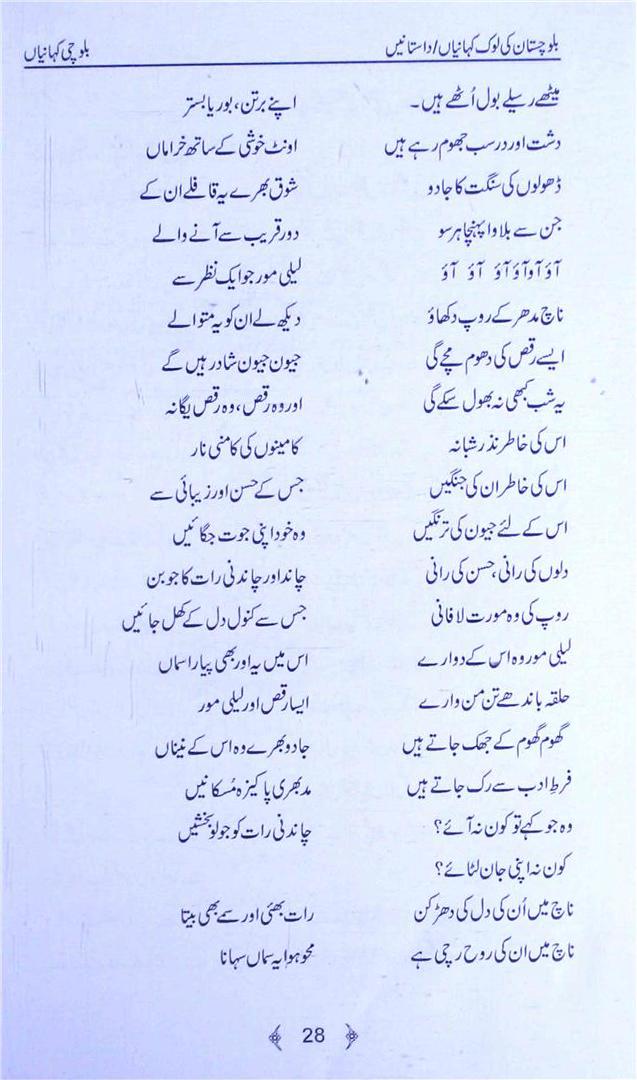 بلوچستان کی لوک کہانیاں/داستانیں
بلوچی کہانیاں
میٹھے رسیلے بول اُٹھے ہیں۔
دشت اور در سب جھوم رہے ہیں
ڈھولوں کی سنگت کا جادو
جن سے بلاوا پہنچا ہر سو
آؤ آو آؤ آؤ آؤ آؤ
ناچ مدھر کے روپ دکھاؤ
ایسے رقص کی دھوم مچے گی
یہ شب کبھی نہ بھول سکے گی
اس کی خاطر نذر شبانہ
اس کی خاطر ان کی جنگیں
اس کے لئے جیون کی ترنگیں
دلوں کی رانی، حسن کی رانی
روپ کی وہ مورت لافانی
لیلی مور وہ اس کے دوارے
حلقہ باندھے تن من وارے
گھوم گھوم کے جھک جاتے ہیں
فرطِ ادب سے رک جاتے ہیں
وہ جو کہے تو کون نہ آئے؟
کون نہ اپنی جان لٹائے؟
ناچ میں اُن کی دل کی دھڑکن
ناچ میں ان کی روح رچی ہے
اپنے برتن، بوریا بستر
اونٹ خوشی کے ساتھ خراماں
شوق بھرے یہ قافلے ان کے
دور قریب سے آنے والے
لیلی مور جو ایک نظر سے
دیکھ لے ان کو یہ متوالے
جیون جیون شاد رہیں گے
اور وہ رقص، وہ رقص یگانہ
کامینوں کی کامنی نار
جس کے حسن اور زیبائی سے
وہ خود اپنی جوت جگائیں
چاند اور چاندنی رات کا جوبن
جس سے کنول دل کے کھل جائیں
اس میں یہ اور بھی پیارا سماں
ایسا رقص اور لیلی مور
جادو بھرے وہ اس کے نیناں
مدبھری پاکیزہ مُسکانیں
چاندنی رات کو جو لو بخشیں
رات بھئی اور سمے بھی بیتا
محو ہوا یہ سماں سہانا
28